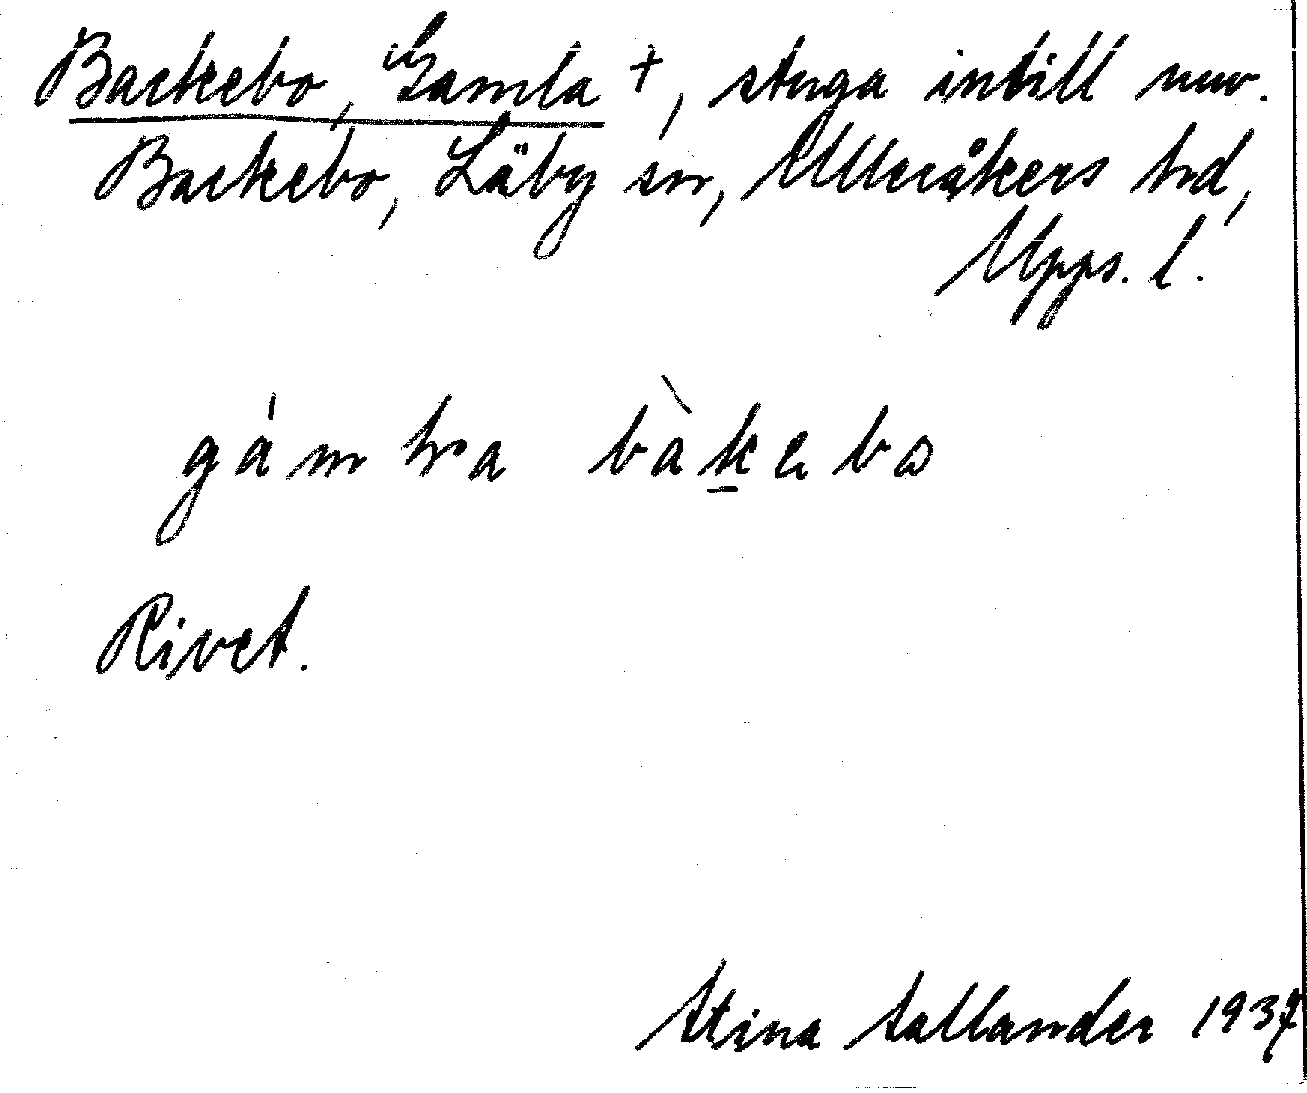 Backebo, Gamla +, stuga intill nuv.
Backebo, Läby sn, Ulleråkers hd,
Upps. l.
Rivet.
Stina Sallander 1937